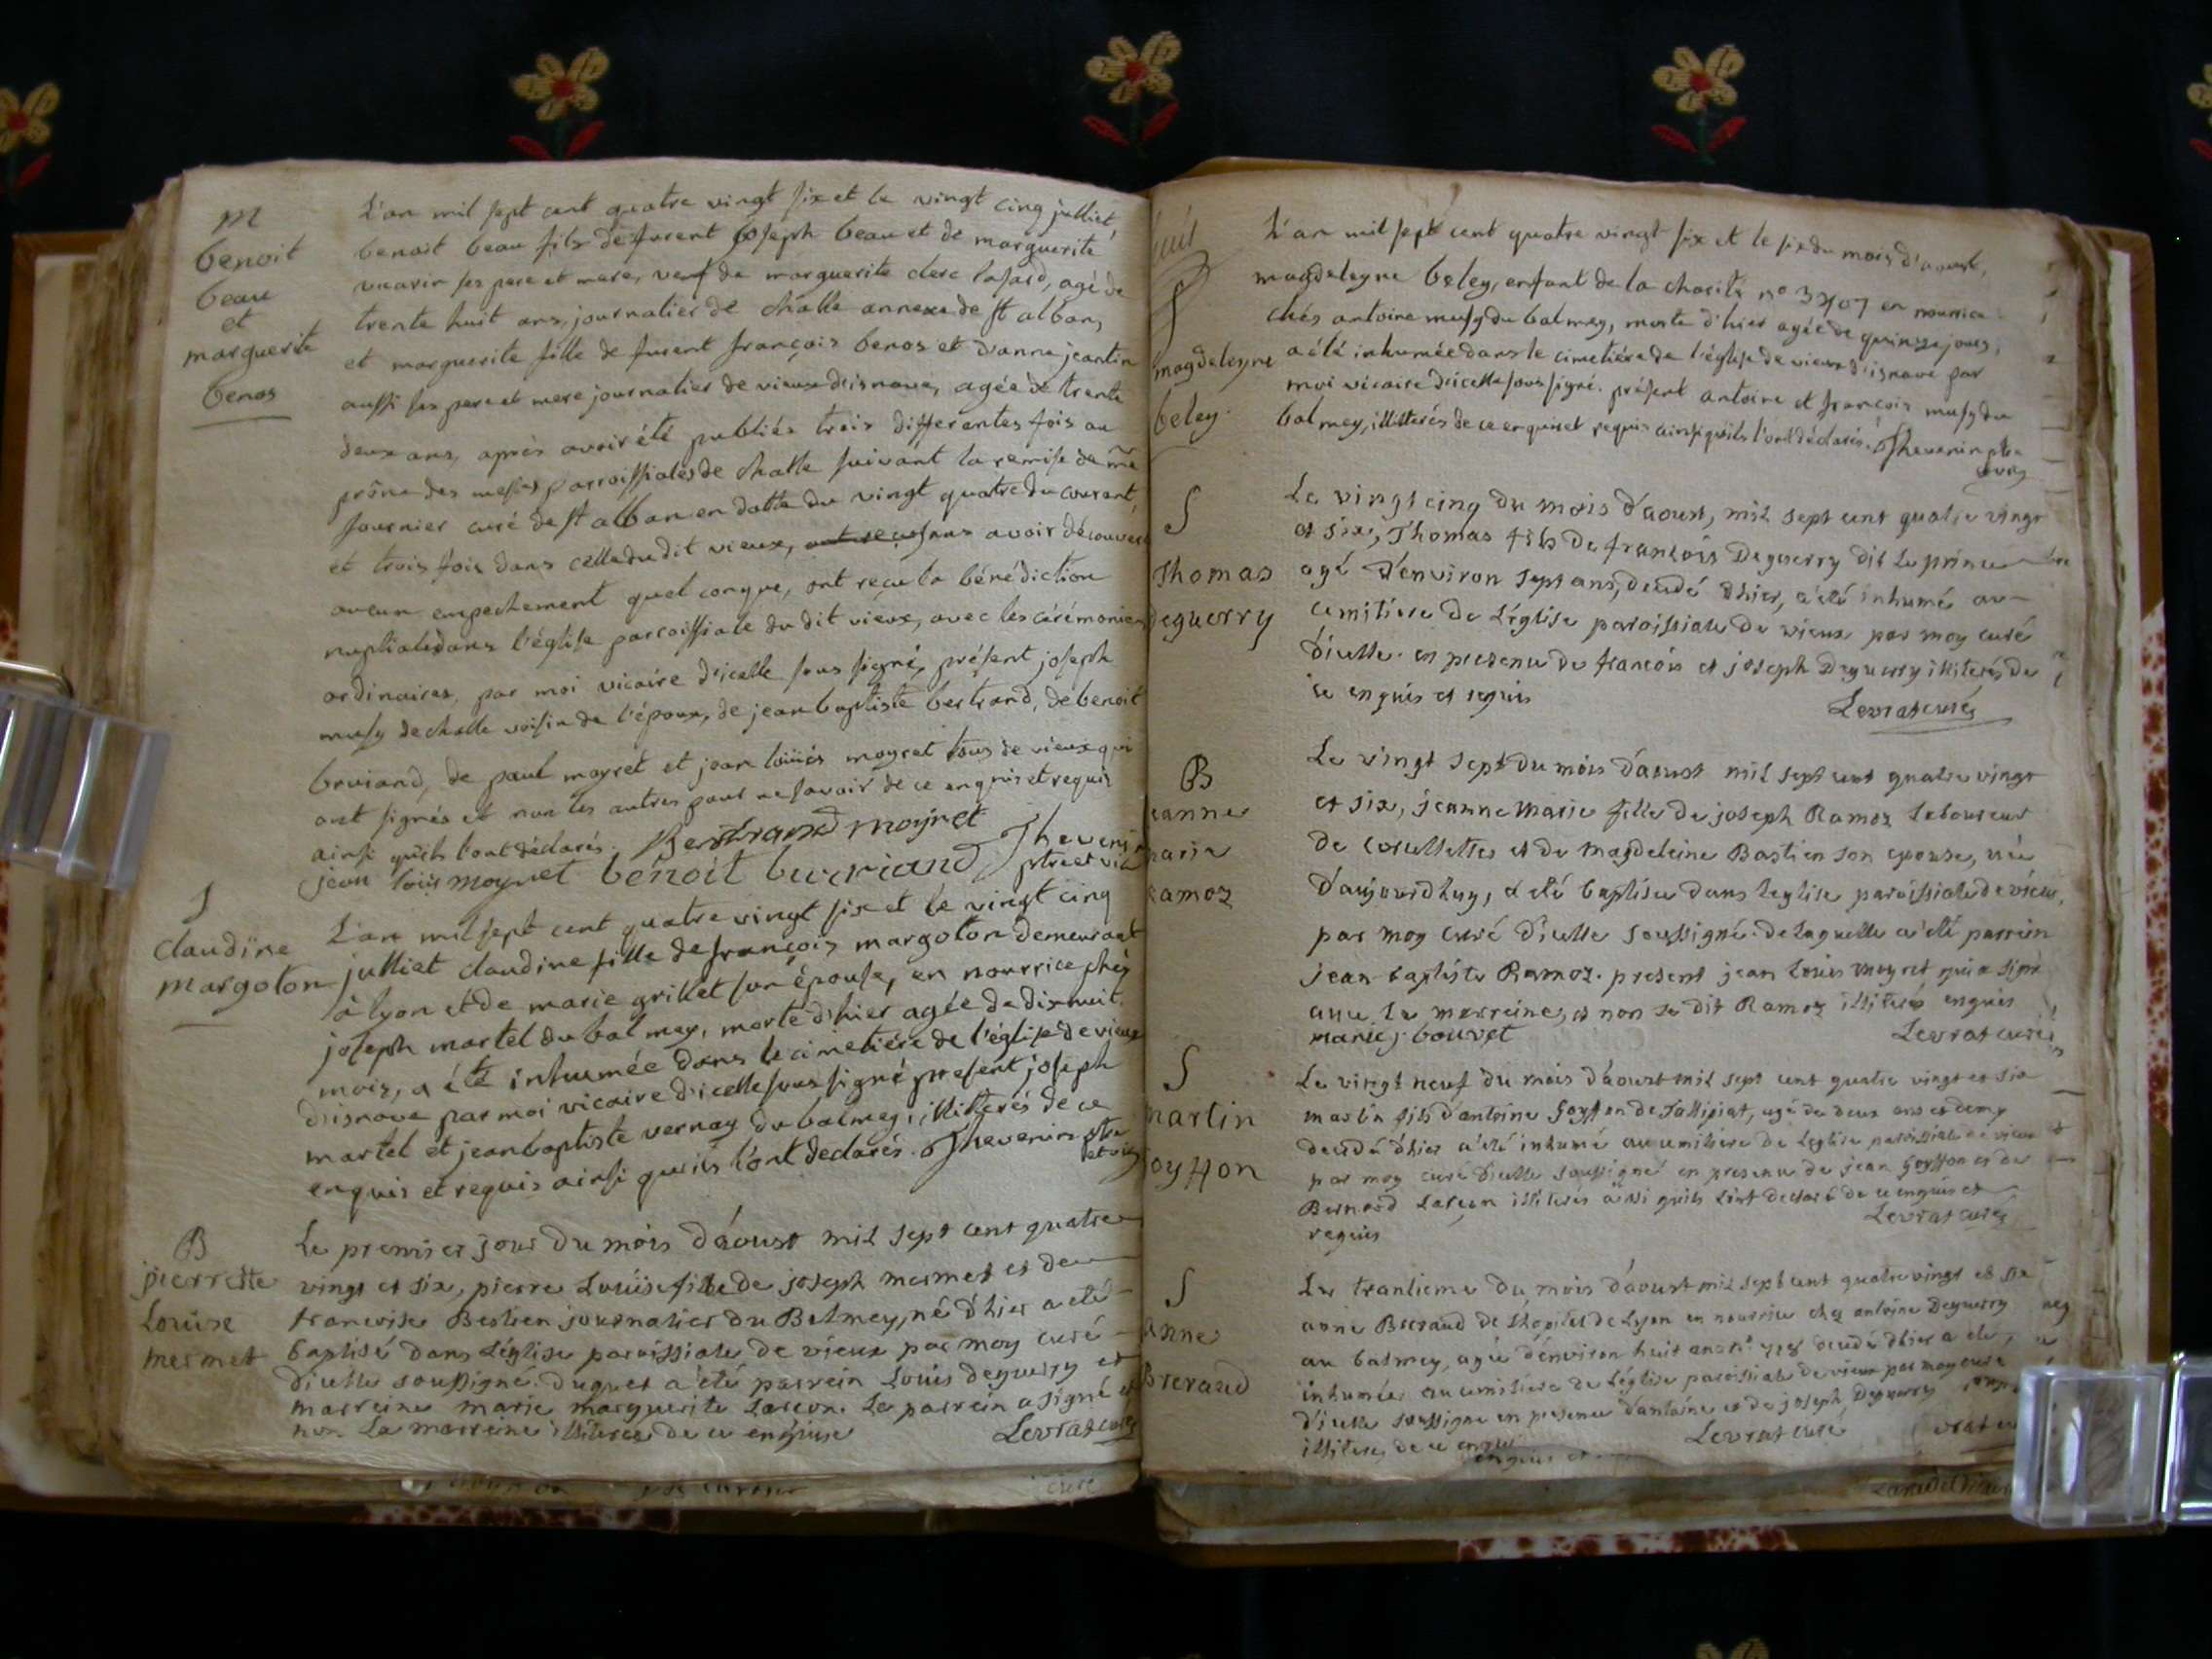 M
benoit
beau
et
marguerite
benos
L'an mil sept cent quatre vingt six et le vingt cinq julliet,
benoit beau fils de furent joseph beau et de marguerite
ses pere et mere, veuf de marguerite clerc agé de
trente huit ans, journalier de challe annexe de st alban,
et marguerite fille de furent françois benos et d'anne jeantin
aussi ses pere et mere journalier de vieux d'isnave, agée de trente
deux ans, après avoir été publiés trois differentes fois au
prône des messes parroissiales de challe suivant la remise de
fournier curé de st alban en datte du vingt quatre du courant,
et trois fois dans celle du dit vieux, sans avoir découvert
aucun empechement quelconque, ont reçu la bénédiction
nuptiale dans l'église parroissiale du dit vieux, avec les cérémonies
ordinaires, par moi vicaire d'icelle sous signé, présent joseph
musy de challe voisin de l'époux, de jean baptiste bertrand, de benoit
bruiand, de paul moyret et jean loüies moyret tous de vieux qui
ont signés et non les autres pour ne savoir de ce enquis et requis
ainsi qu'ils l'ont déclarés. Bertrand moyret
jean loüis moyret benoit buriand Thevenin
ptre et vic
S
claudine
margoton
L'an mil sept cent quatre vingt six et le vingt cinq
julliet claudine fille de françois margoton demeurant
à lyon et de marie grillet son épouse, en nourrice chéz
joseph martel du balmey, morte d'hier agée de dixhuit
mois, a été inhumée dans le cimetière de l'église de vieux
d'isnave par moi vicaire d'icelle sous signé present joseph
martel et jean baptiste vernay du balmey, illitterés de ce
enquis et requis ainsi qu'ils l'ont declarés. Thevenin ptre
et vic
B
pierrette
Louise
mermet
Le premier jour du mois d'aoust mil sept cent quatre
vingt et six, pierre Louise fille de joseph mermet et de
francoise Bastien journalier du Balmey, né d'hier a eté
baptisé dans L'église paroissiale de vieux par moy curé
d'icelle soussigné. duquel a été parrein Louis deguerry et
marreine marie marguerite Larcon. Le parrein a signé et
non La marreine illiterée de ce enquise
Levrat curé
S
magdeleyne
beley
L'an mil sept cent quatre vingt six et le six du mois d'aoust,
magdeleyne beley, enfant de la charité n° en nourrice
chés antoine musy du balmey, morte d'hier agée de quinze jours,
a été inhumée dans le cimetière de l'église de vieux d'isnave par
moi vicaire d'icelle sous signé. présent antoine et françois musy du
balmey, illitterés de ce enquis et requis ainsi qu'ils l'ont déclarés. Thevenin ptre
S
Thomas
deguerry
Le vingt cinq du mois d'aoust, mil sept cent quatre vingt
et six, Thomas fils de francois Deguerry dit Le prince
agé d'environ sept ans, decedé d'hier, a été inhumé au
cemitiere de L'église paroissiale de vieux par moy curé
d'icelle. en presence de francois et joseph Deguerry illiterés de
ce enquis et requis
Levrat curé
B
jeanne
marie
ramoz
Le vingt sept du mois d'aoust mil sept cent quatre vingt
et six, jeanne marie fille de joseph Ramoz Laboureur
de corcellettes et de magdeleine Bastien son epouse, née
d'aujourdhuy, a eté baptisée dans leglise paroissiale de vieux,
par moy curé d'icelle soussigné. de Laquelle a été parrein
jean baptiste Ramoz. present jean Louis moyret qui a signé
avec La marreine, et non Le dit Ramoz illiteré enquis
marie j. bouvet Levrat curé
S
martin
goyffon
Le vingt neuf du mois d'aoust mil sept cent quatre vingt et six
martin fils d'antoine goyffon de agé de deux ans et demy
decedé d'hier a été inhumé au cemitiere de Leglise paroissiale de vieux
par moy curé d'icelle soussigné en presence de jean goyffon et de
Bernard Larçon illiterés ainsi qu'ils L'ont declaré de ce enquis et
requis
Levrat curé
S
anne
Breraud
Le trantieme du mois d'aoust mil sept cent quatre vingt et six
anne Breraud de L'hopital de Lyon en nourrice chez antoine Deguerry
au balmey, agée d'environ huit ans decedé d'hier a ete
inhumée au cemitiere de L'église paroissiale de vieux par moy curé
d'icelle soussigné en presence d'antoine et de joseph Deguerry
illiterés de ce enquis
Levrat curé